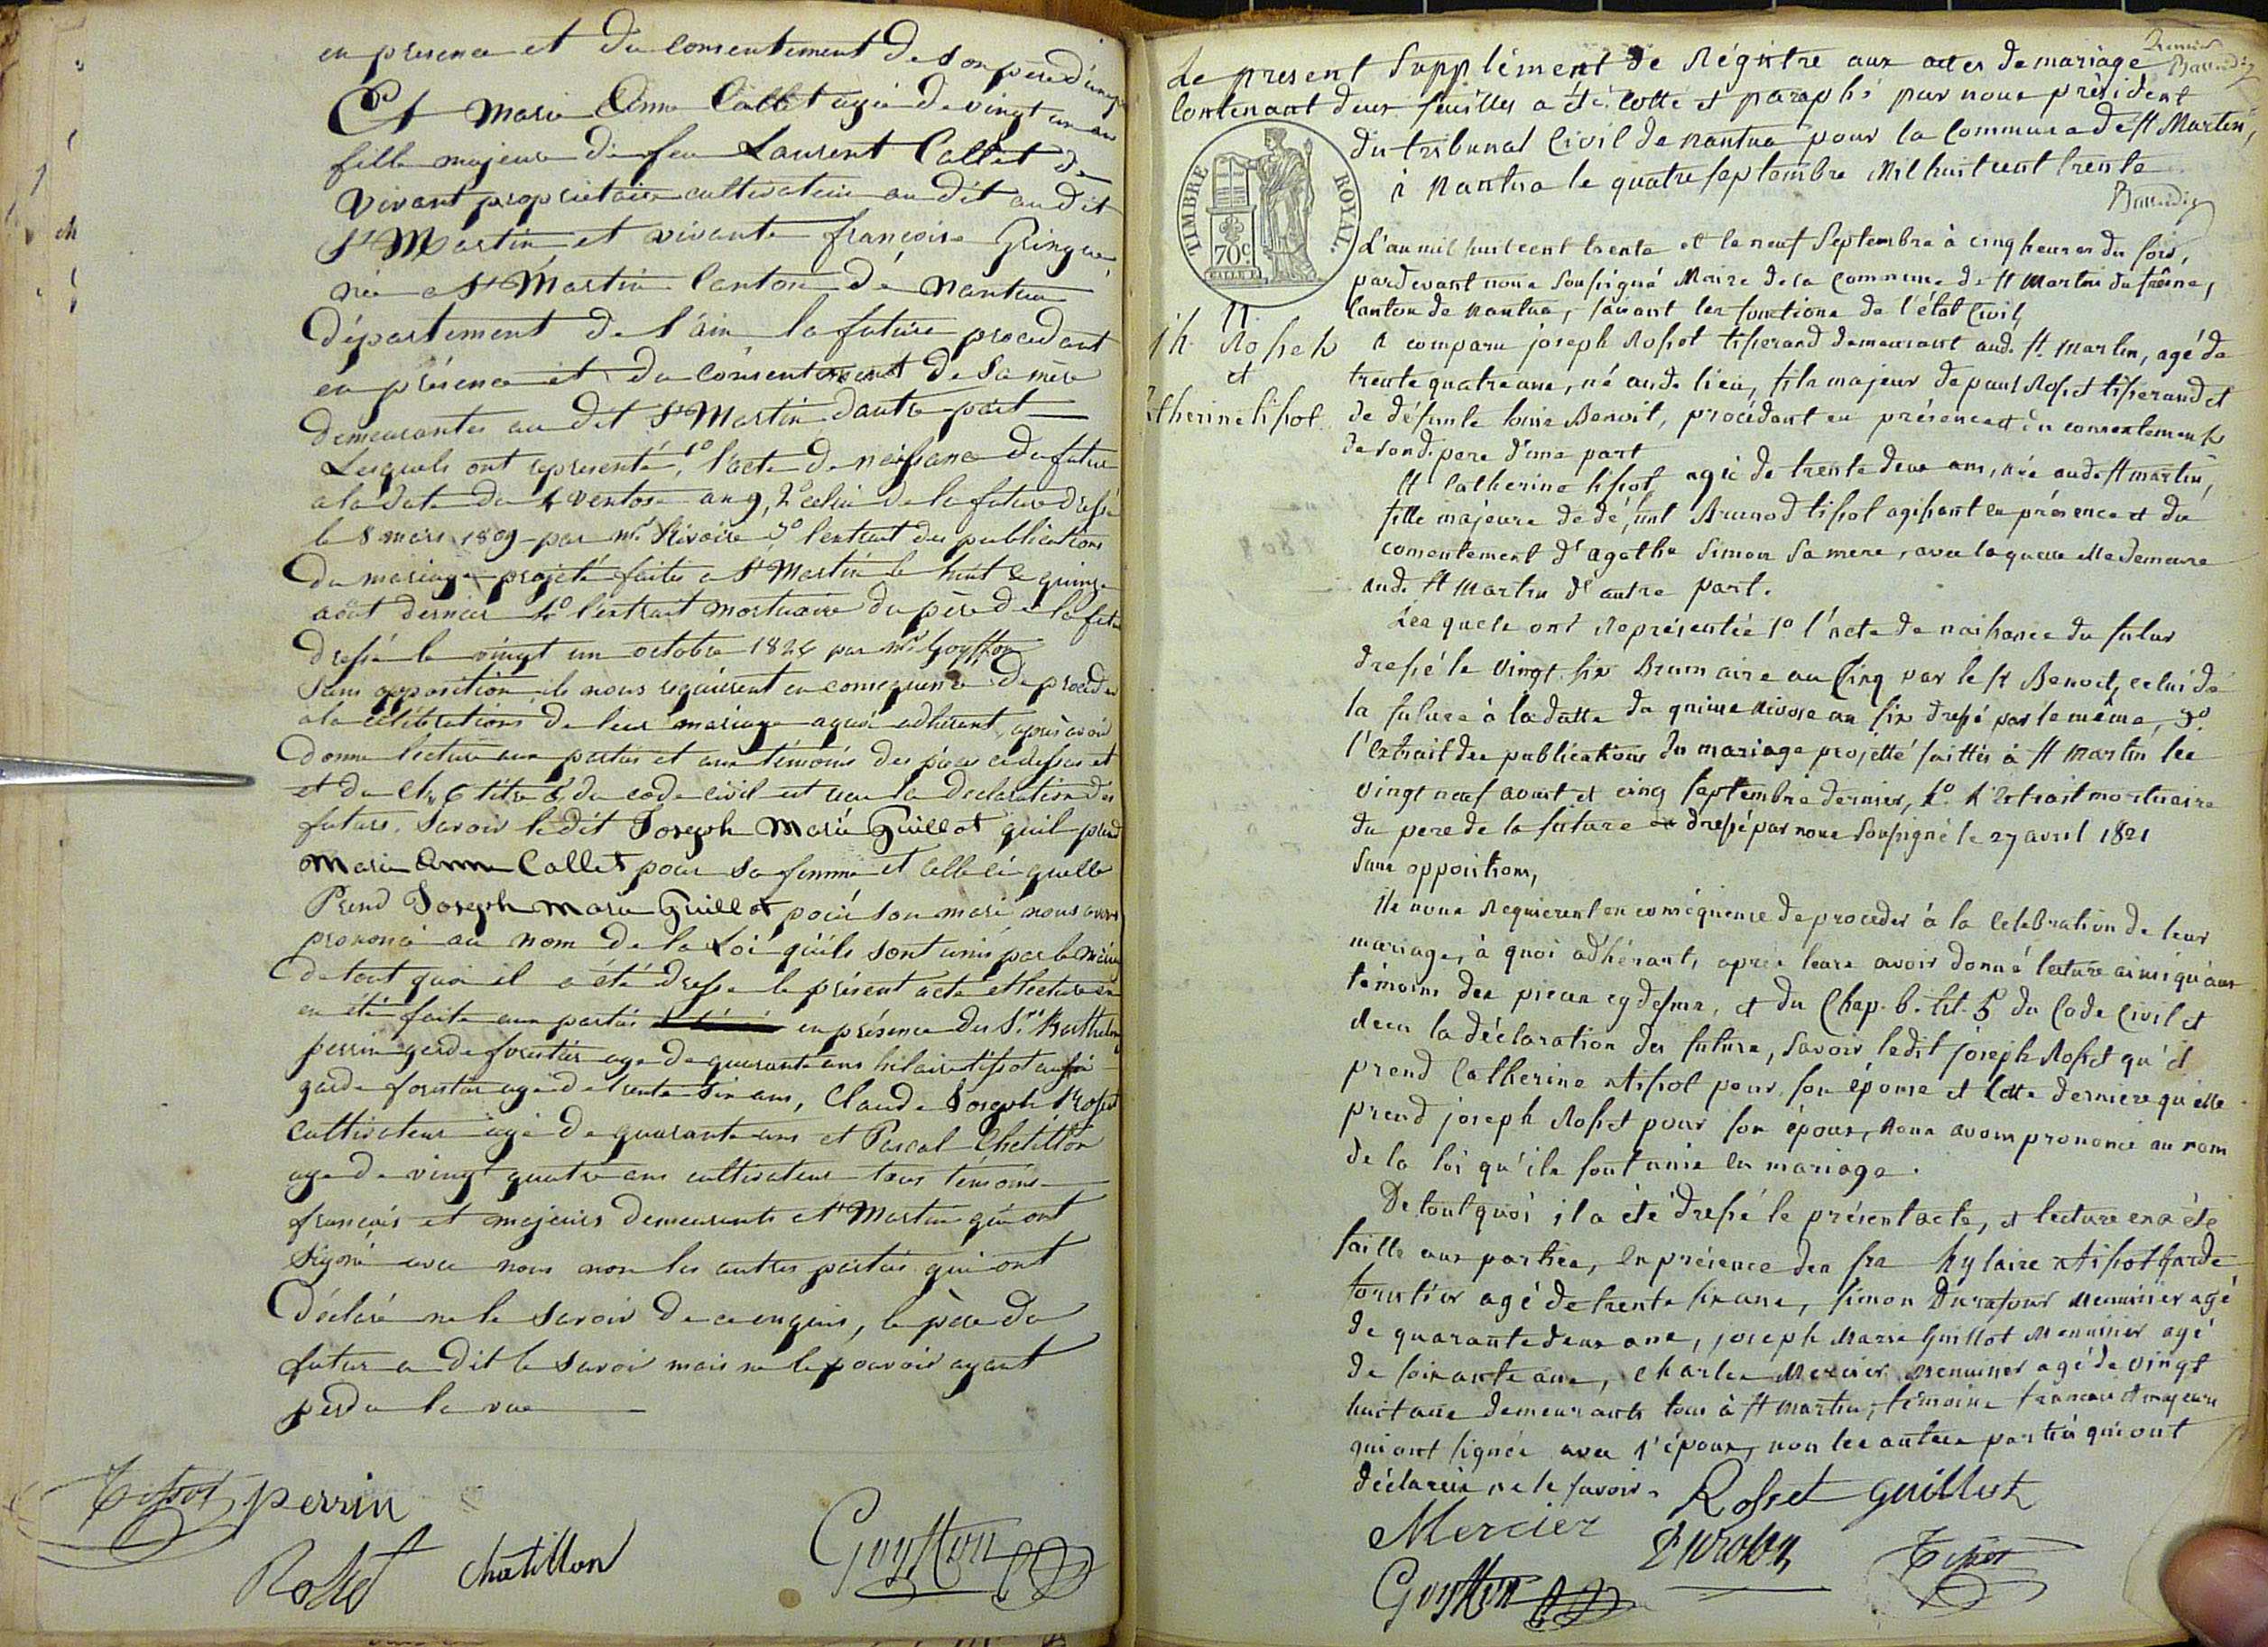 en presence et du consentement de son père d'une p
Et Marie Anne Callet agée de vingt un ans
fille majeure de feu Laurent Callet de
Vivant proprietaire cultivateur au dit au dit
St Martin et vivante françoise Gringue
née a St Martin Canton de Nantua
département de l'ain la future procedant
en présence et du consentement de sa mère
demeurantes au dit St Martin d'autre part
Lesquels ont représenté, 1o l'acte de naissance du futur
a la date du 4 ventose an 9, 2o celui de la future dressé
le 8 mars 1809 par mr. Rivoire 3o l'extrait des publications
du mariage projeté faites a St Martin le huit & quinze
août dernier 4o l'extrait mortuaire du père de la futu
dressé le vingt un octobre 1826 par mr Goyffon
Sans opposition ils nous requièrent en consequence de proceder
a la célébration de leur mariage a quoi adhérant, après avoir
donné lecture aux parties et aux témoins des pièces ci dessus et
et du Ch. 6 titre 5, du code civil et reçu la declaration des
futurs. Savoir ledit Joseph Marie Guillot quil prend
Marie Anne Callet pour sa femme et celle ci quelle
Prend Joseph Marie Guillot pour son mari nous avons
prononcé au nom de la Loi qu'ils sont unis par le Maria
de tout quoi il a été dressé le présent acte et lecture en
en été faite aux parties en présence des Srs Barthelm
perrin garde forestier age de quarante ans hilaire tissot aussi
garde forestier agé de trente six ans, Claude Joseph Rosset
cultivateur agé de quarante ans et Pascal Chatillon
age de vingt quatre ans cultivateur tous témoins
français et majeurs demeurants a St Martin qui ont
Signé avec nous non les autres parties qui ont
Déclaré ne le savoir de ce enquis, le père du
futur a dit le savoir mais ne le pouvoir ayant
perdu la vue
Tissot perrin
Rosset chatillon Goyffon
Le present Supplément de Régistre aux actes de mariage
contenant deux feuilles a été cotté et paraphé par nous président
du tribunal Civil de nantua pour la Commune de St Martin,
à Nantua le quatre septembre mil huit cent trente
TIMBRE ROYAL.
70c.
L'an mil huit cent trente et le neuf Septembre à cinq heures du soir,
pardevant nous soussigné Maire de la Commune de St Martin du frêne,
Canton de nantua, faisant les fonctions de l'état Civil,
A comparu joseph Rosset tisserand demeurant aud. St. Martin, agé de
trente quatre ans, né aud. lieu, fils majeur de paul Rosset tisserand et
de défunte louise Benoit, procédant en présence et du consentement
de sond. pere d'une part
jh Rosset
et
therine tissot
Et Catherine tissot agée de trente deux ans, née aud. St martin,
fille majeure de défunt Brunod tissot agissant en présence et du
consentement d'agathe Simon sa mere, avec laquelle elle demeure
aud. St Martin d'autre part.
Lesquels ont représentée 1o l'acte de naissance du futur
dressé le vingt six Brumaire an Cinq par le sr Benoit, celui de
la future à la datte du quinze nivose an six dressé par le même, 3o.
l'extrait des publications du mariage projetté faittes à St martin les
vingt neuf aoust et cinq septembre dernier, 4o. l'extrait mortuaire
du pere de la future dressé par nous soussigné le 27 avril 1821
sans oppositions,
ils nous Requierent en conséquence de proceder à la celebration de leur
mariage, à quoi adhérant, apres leurs avoir donné lecture ainsi qu'aux
témoins des pieces cy dessus, et du Chap. 6. tit. 5 du Code Civil et
recu la déclaration des futurs, savoir ledit joseph Rosset qu'il
prend Catherine tissot pour son épouse et Cette derniere qu'elle
prend joseph Rosset pour son époux, nous avons prononcé au nom
de la loi qu'ils sont unis en mariage.
De tout quoi il a été dressé le présent acte, et lecture en a été
faitte aux parties, en présence des srs hylaire tissot garde
forestier agé de trente six ans, simon Durafour Menuisier agé
de quarante deux ans, joseph Marie Guillot Menuisier agé
de soixante ans, Charles Mercier menuisier agé de vingt
huit ans demeurants tous à St martin, témoins francais et majeurs
qui ont signés avec l'époux, non les autres parties qui ont
déclarés ne le savoir.
Rosset guillot
Mercier Tissot
Goyffon